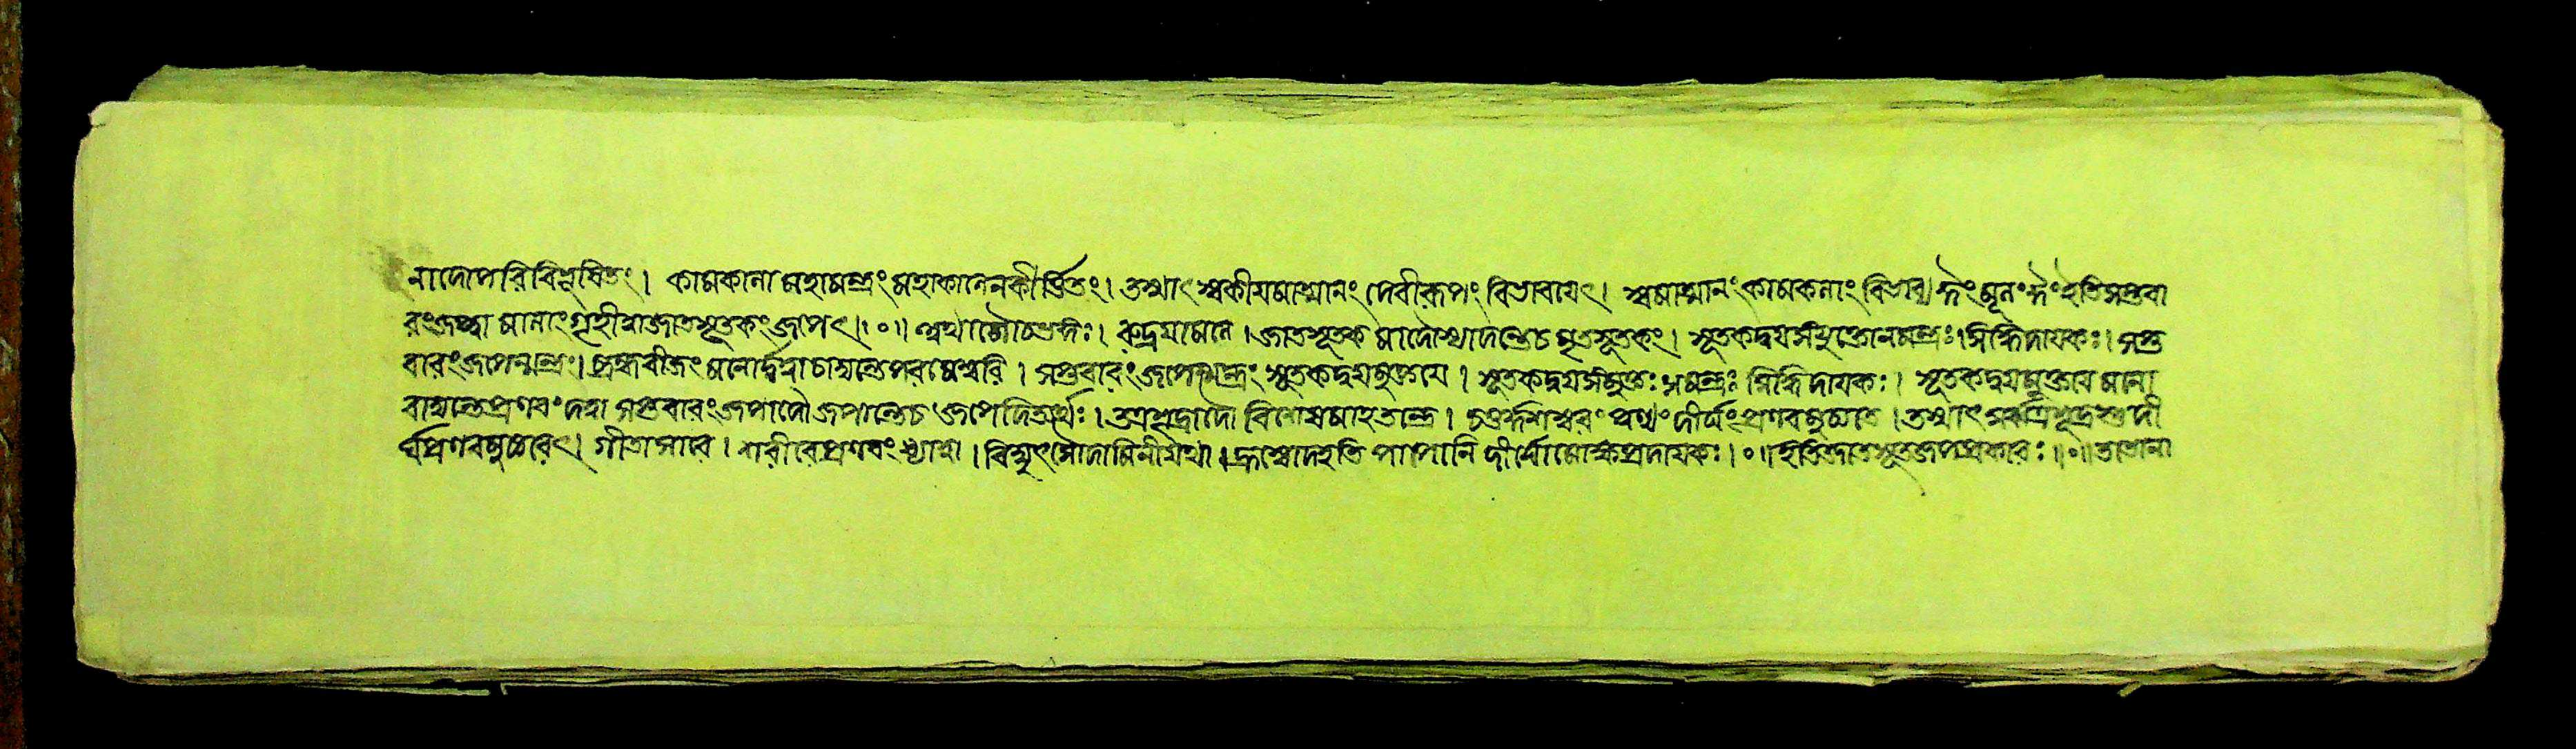 নাদোপরিবিভূষিতং। কামকালা মহামন্ত্রং মহাকালেনকীর্ত্তিতং। তস্মাৎ স্বকীয়মাত্মানং দেবীরূপং বিভাবয়েৎ। স্বমাত্মানং কামকলাং বিভাব্য ইতিসপ্তবা
রংজপ্ত্বা মালাং গৃহীত্বাজাতসূতকং জপেৎ।।০।। অথাশৌচভঙ্গঃ। রুদ্রযামলে। জাতসূতক মাদৌস্যাদন্তেচ মৃতসূতকং। সূতকদ্বয়সংযুক্তোনমন্ত্রঃ।সিদ্ধিদায়কঃ। সপ্ত
বারংজপেন্মন্ত্রং। ব্রহ্মবীজং মনোর্দ্দত্বাচাদ্যন্তেপরমেশ্বরি। সপ্তবারংজপেন্মন্ত্রং সূতকদ্বয়মুক্তয়ে। সূতকদ্বয়সংযুক্তঃ সমন্ত্রঃ সিদ্ধিদায়কঃ। সূতকদ্বয়মুক্তায় মালা
বাদ্যন্তেপ্রণবং দত্বা সপ্তবারং জপাদৌ জপান্তেচ জপেদিত্যর্থঃ। চতুর্দ্দশস্বরং দীর্ঘং প্রণবমুচ্যতে। তস্মাৎ সর্ব্বত্র শূদ্রস্তু দী
র্ঘপ্রণবমুচ্চরেৎ। গীতাসারে। শরীরেপ্রণবং ধ্যাত্বা। বিদ্যুৎসৌদামিনীযথা। হ্রস্বোদহতি পাপানি দীর্ঘোমোক্ষপ্রদায়কঃ।০।।ইতিজাতসূতজপপ্রকারঃ।।০।।